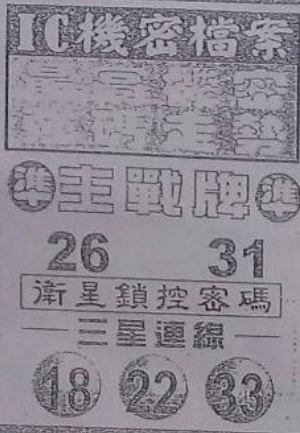 IC機密檔案
準主戰牌準
26 31
衛星鎖控密碼
三星連線
18 22 33